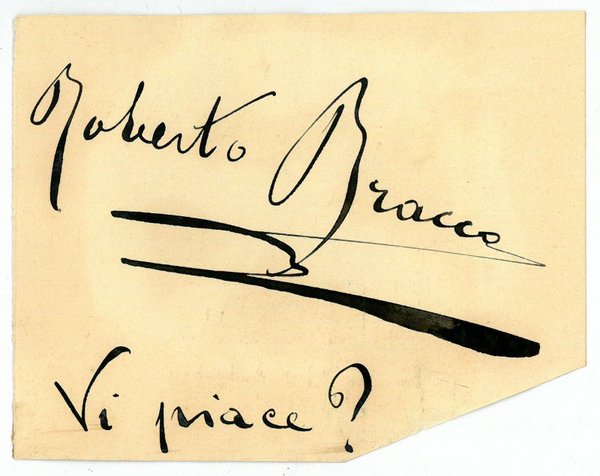 Roberto Bracco
Vi piace?